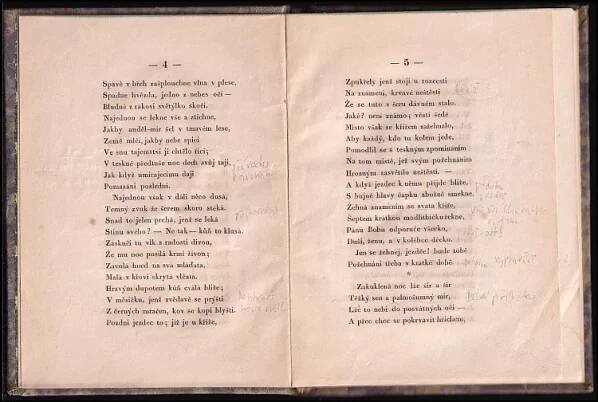 — 4 —
Spavě v břeh zašplouchne vlna v plese,
Spadne hvězda, jedno z nebes oči —
Bludné z rákosí světýlko skočí.
Najednou se lekne vše a ztichne,
Jakby anděl-mír šel v tmavém lese,
Země mlčí, jakby nebe spící
Ve snu tajemství jí chtělo říci;
V teskné předtuše noc dech svůj tají,
Jak když umírajícímu dají
Pomazání poslední.
Najednou však v dáli něco dusá,
Temný zvuk že šerem skoro stéká.
Snad to jelen pechá, jenž se leká
Stínu svého? — Ne tak — kůň to klusá.
Zaskučí tu vlk z radosti divou,
Že mu noc posílá krmi živou;
Zavolá hned na svá mláďata,
Malá v křoví skrytá vlčata.
Hravým dupotem kůň cválá blíže;
V měsíčku, jenž zvědavě se prýští
Z černých mračen, kov se koní blyští.
Pozdní jezdec to; již je u kříže,
— 5 —
Zpukřelý jenž stojí u rozcestí
Na znamení, krvavé neštěstí
Že se tuto v šeru dávném stalo.
Jaké? není známo; věstí šedé
Místo však se křížem zatehnalo,
Aby každý, kdo tu kolem jede,
Pomodlil se s teskným zpomínáním
Na tom místě, jež svým požehnáním
Hrozným zasvětilo neštěstí. —
A když jezdec k němu přijde blíže,
S bujné hlavy čapku zbožně smekne,
Žehná znamením se svata kříže,
Šeptem krátkou modlitbičku řekne,
Pánu Bohu odporuče všecko,
Duši, ženu, a v kolébce děcko.
Jen se žehnej, jezdče! bude tobě
Požehnání třeba v krátké době.
*
Zakuklená noc lže šír a šír
Těžký sen a palmošumný mír,
Lže to nebi do posvátných očí —
A přec chce se pokrvavit hříchem,